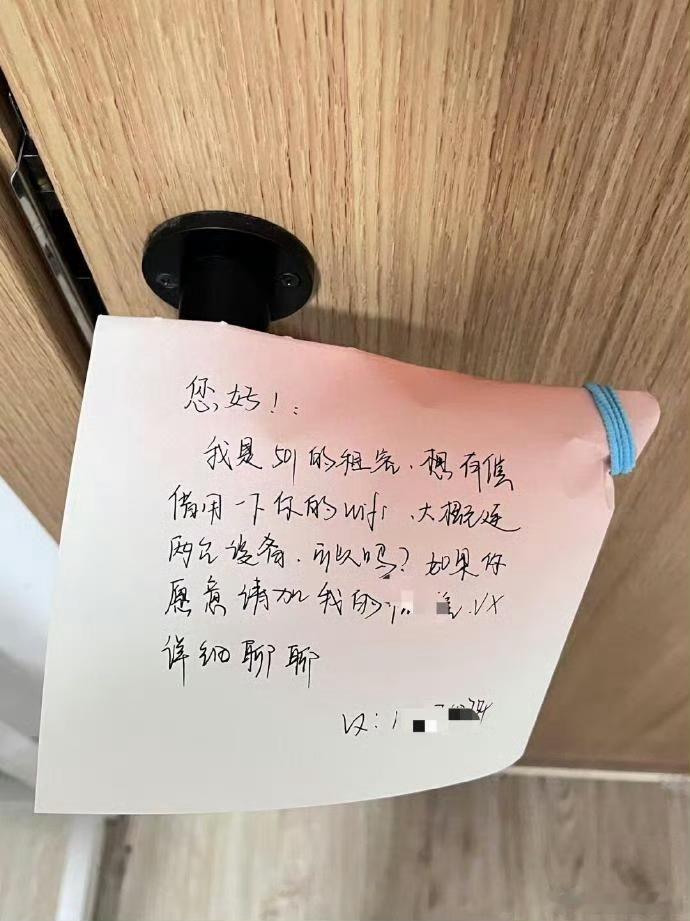 您好！：
我是501的租客.想有偿
借用一下你的wifi、大概连
两台设备.可以吗？如果你
愿意请加我的 VX
详细聊聊
VX：